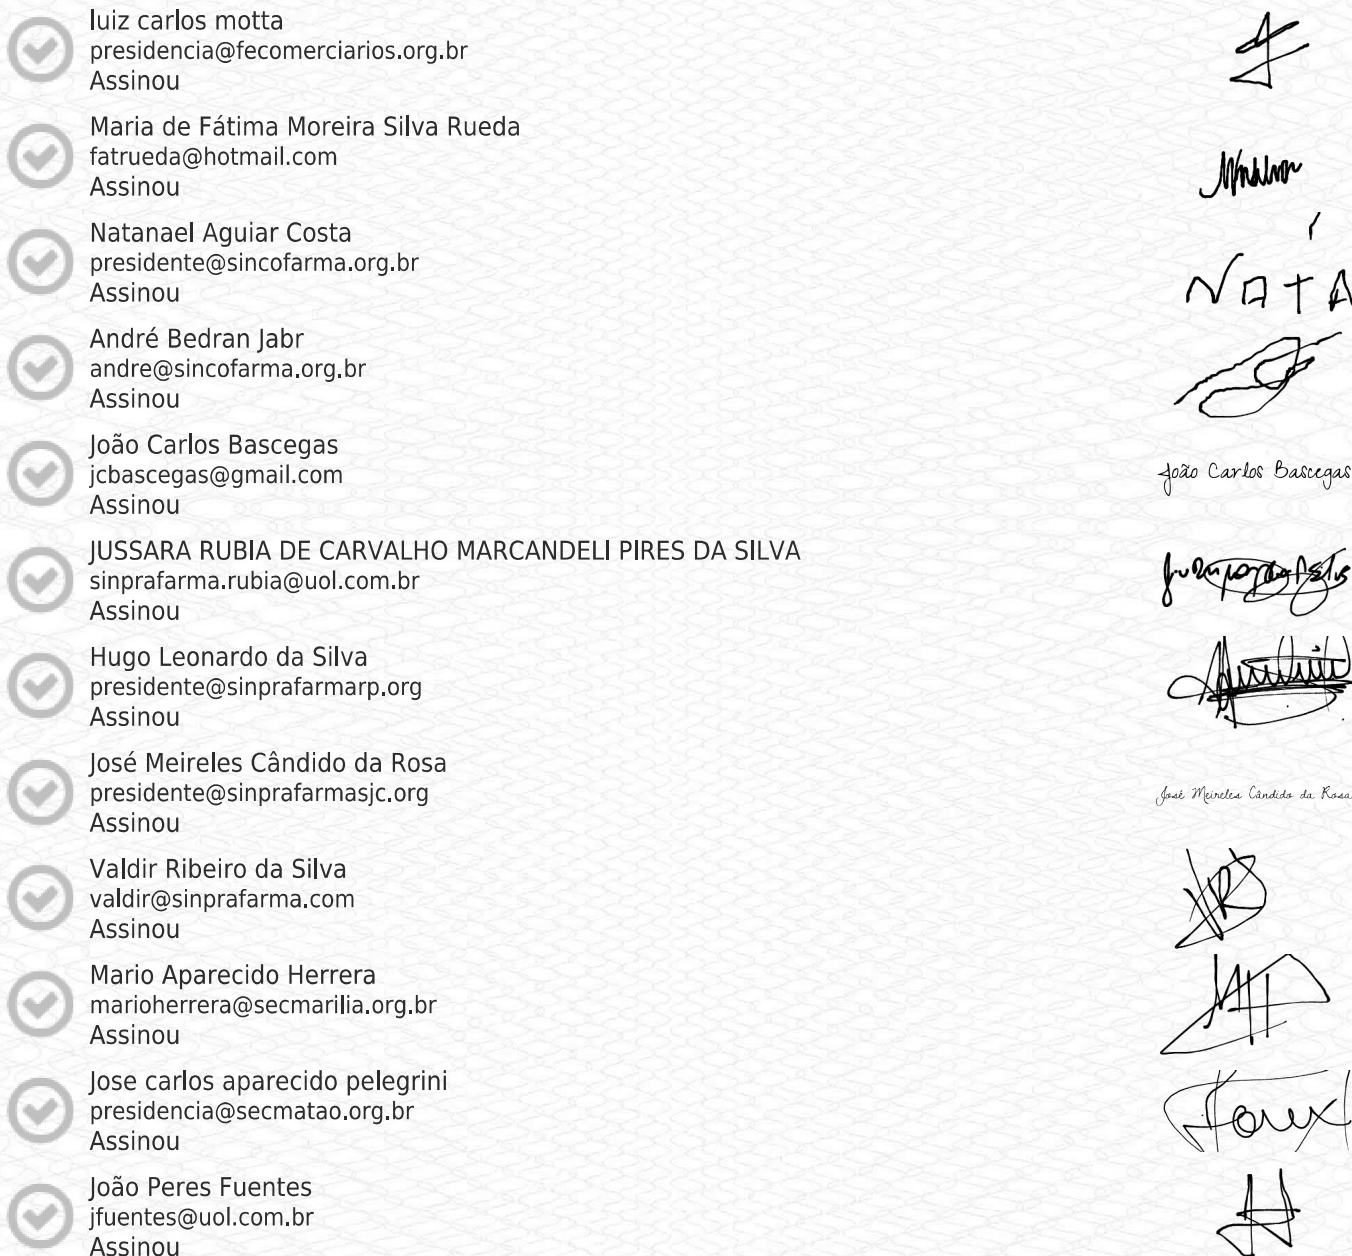 luiz carlos motta
presidencia@fecomerciarios.org.br
Assinou
Maria de Fátima Moreira Silva Rueda
fatrueda@hotmail.com
Assinou
Natanael Aguiar Costa
presidente@sincofarma.org.br
Assinou
NATA
André Bedran Jabr
andre@sincofarma.org.br
Assinou
João Carlos Bascegas
jcbascegas@gmail.com
João Carlos Bascegas
Assinou
JUSSARA RUBIA DE CARVALHO MARCANDELI PIRES DA SILVA
sinprafarma.rubia@uol.com.br
Assinou
Hugo Leonardo da Silva
presidente@sinprafarmarp.org
Assinou
José Meireles Cândido da Rosa
presidente@sinprafarmasjc.org
José Meireles Cândido da Rosa
Assinou
Valdir Ribeiro da Silva
valdir@sinprafarma.com
Assinou
Mario Aparecido Herrera
marioherrera@secmarilia.org.br
Assinou
Jose carlos aparecido pelegrini
presidencia@secmatao.org.br
Assinou
João Peres Fuentes
jfuentes@uol.com.br
Assinou